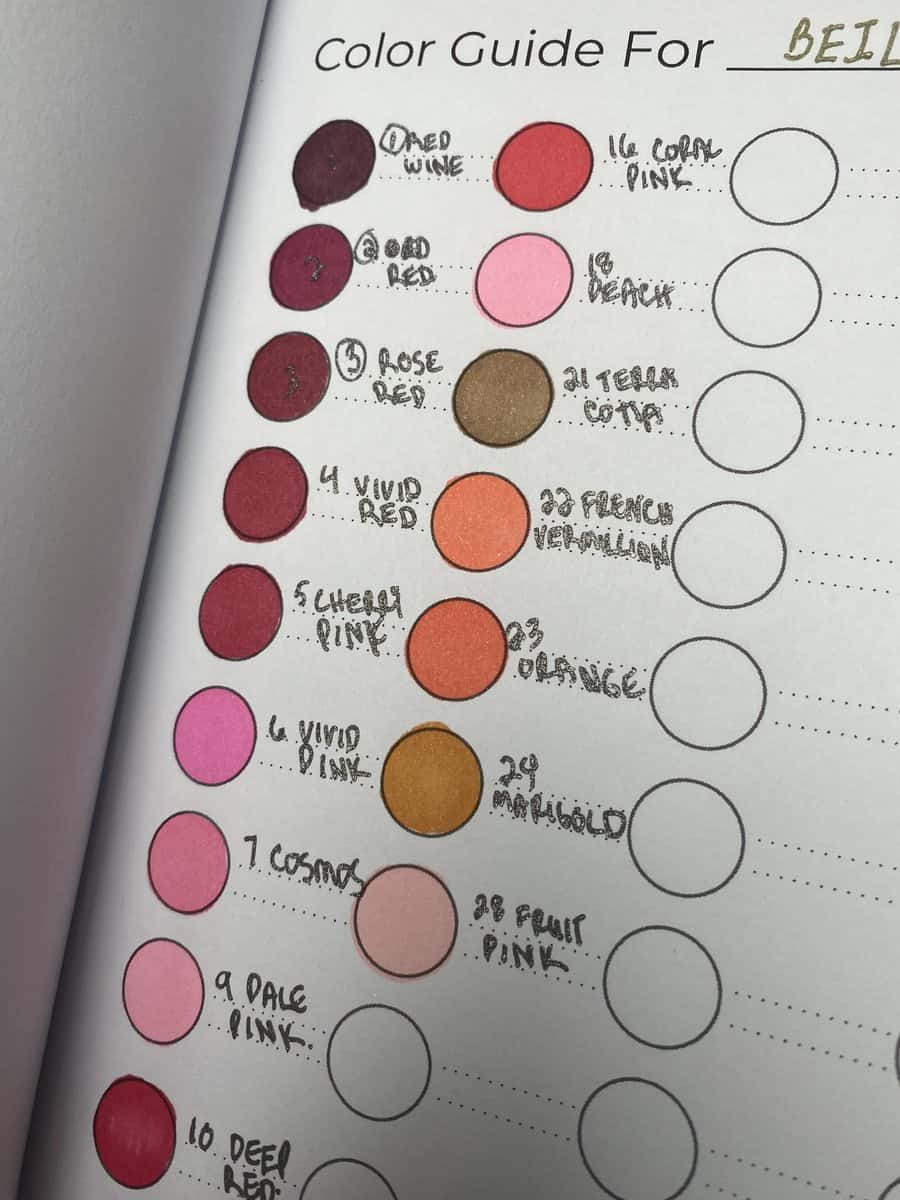 Color Guide For BEIL
① RED
WINE
② OLD
RED
③ ROSE
RED
4 VIVID
RED
5 CHERRY
PINK
6 VIVID
PINK
7 COSMOS
9 PALE
PINK.
10 DEEP
RED.
16 CORAL
PINK
18
PEACH
21 TERRA
COTTA
22 FRENCH
VERMILLION
23
ORANGE
24
MARIGOLD
28 FRUIT
PINK
2
3